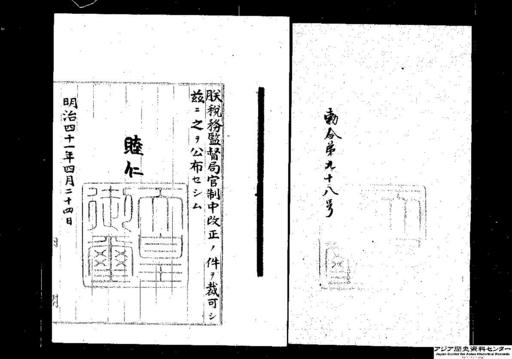 勅令第九十八号
朕税務監督局官制中改正ノ件ヲ裁可シ
茲ニ之ヲ公布セシム
睦仁
天皇
御璽
明治四十一年四月二十四日
アジア歴史資料センター
Japan Center for Asian Historical Records